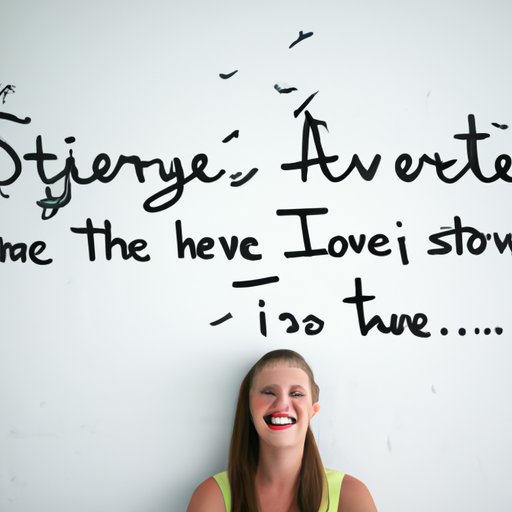 Stjerrye Averte
me the heve Iove i stow
iso twe.....